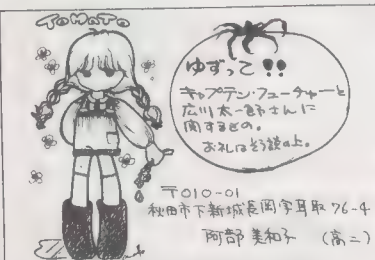 TOMATO
ゆずって!!
キャプテン・フューチャーと
広川太一郎さんに
関するもの。
お礼はそう談の上。
〒010-01
秋田市下新城長岡字耳取76-4
阿部 美和子 (高二)